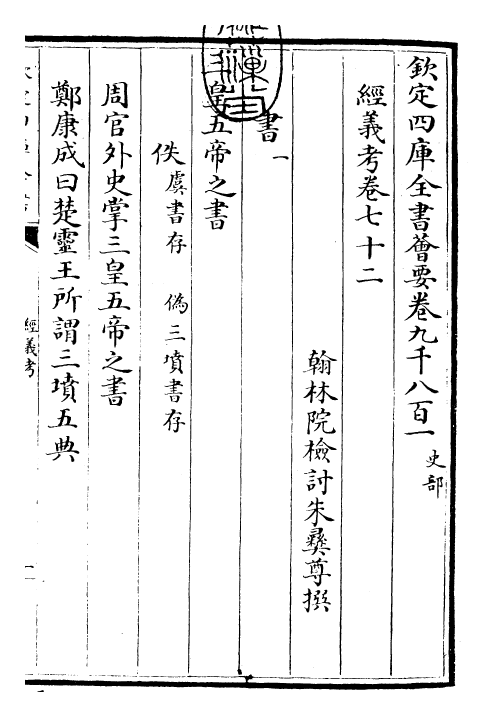 欽定四庫全書薈要卷九千八百一 史部
經義考卷七十二
翰林院檢討朱彝尊撰
書一
三皇五帝之書
佚 虞書存 偽三墳書存
周官外史掌三皇五帝之書
鄭康成曰楚靈王所謂三墳五典
經義考